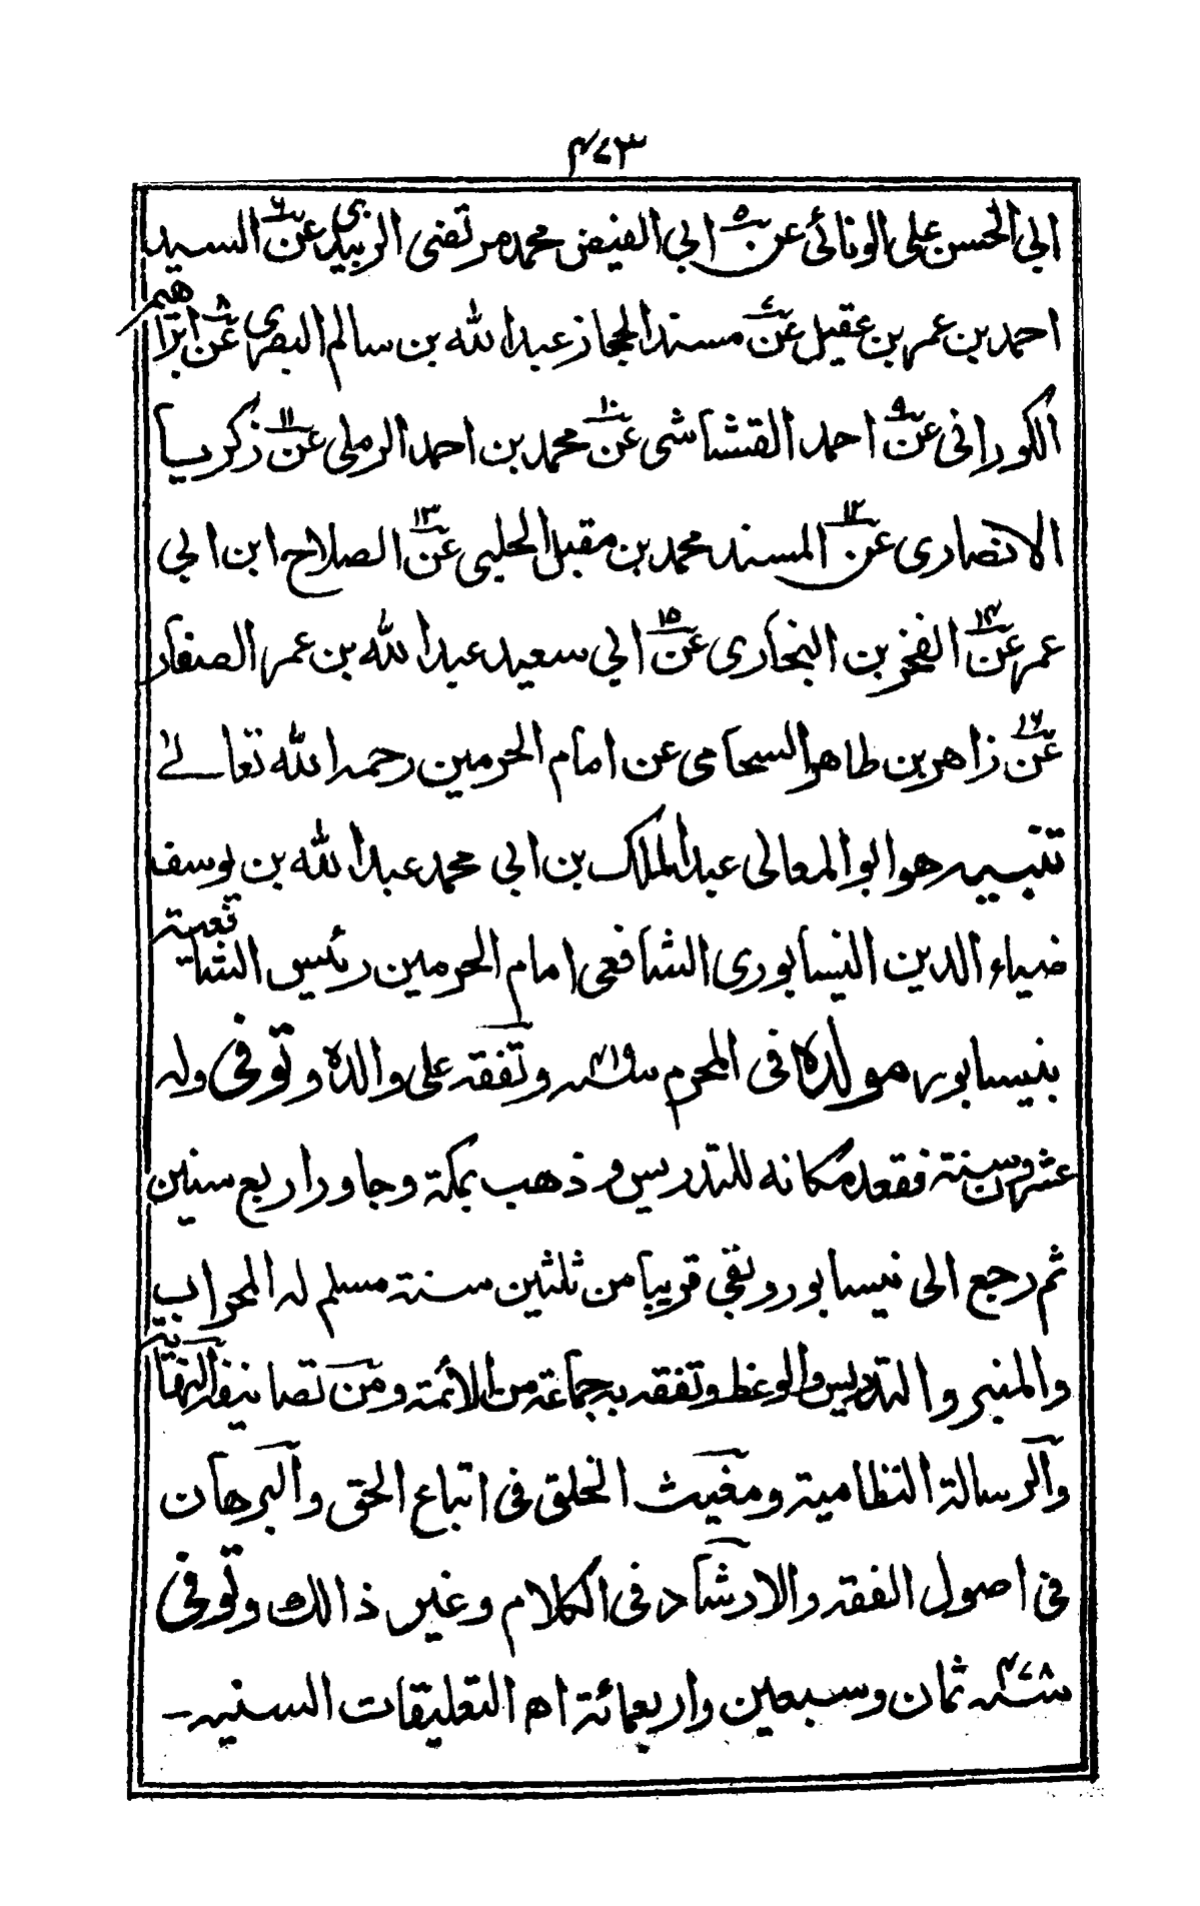 ٤٧٣
ابي الحسن علي الونائي عن ٥ ابي الفيض محمد مرتضى الزبيدي عن ٦ السيد
احمد بن عمر بن عقيل عن ٧ مسند الحجاز عبد الله بن سالم البصري عن ٨ ابراهيم
الكوراني عن ٩ احمد القشاشى عن ١٠ محمد بن احمد الرملي عن ١١ زكريا
الانصارى عن ١٢ المسند محمد بن مقبل الحلبي عن ١٣ الصلاح ابن ابي
عمر عن ١٤ الفخر بن البخارى عن ١٥ ابي سعيد عبد الله بن عمر الصفار
عن ١٦ زاهر بن طاهر السحامى عن امام الحرمين رحمه الله تعالى
تنبيه هو ابو المعالى عبد الملك بن ابي محمد عبد الله بن يوسف
ضياء الدين النيسابورى الشافعى امام الحرمين رئيس الشافعية
بنيسابور مولده في المحرم سنة ٤١٩ وتفقه على والده وتوفى وله
عشرون سنة فقعد مكانه للتدريس وذهب بمكة وجاور اربع سنين
ثم رجع الى نيسابور وبقي قريبا من ثلثين سنة مسلم له المحراب
والمنبر والتدريس والوعظ وتفقه به جماعة من الائمة ومن تصانيفه النهاية
والرسالة النظامية ومغيث الخلق في اتباع الحق والبرهان
في اصول الفقه والارشاد في الكلام وغير ذالك وتوفى
سنة ٤٧٨ ثمان وسبعين واربعمائة اه التعليقات السنيه -